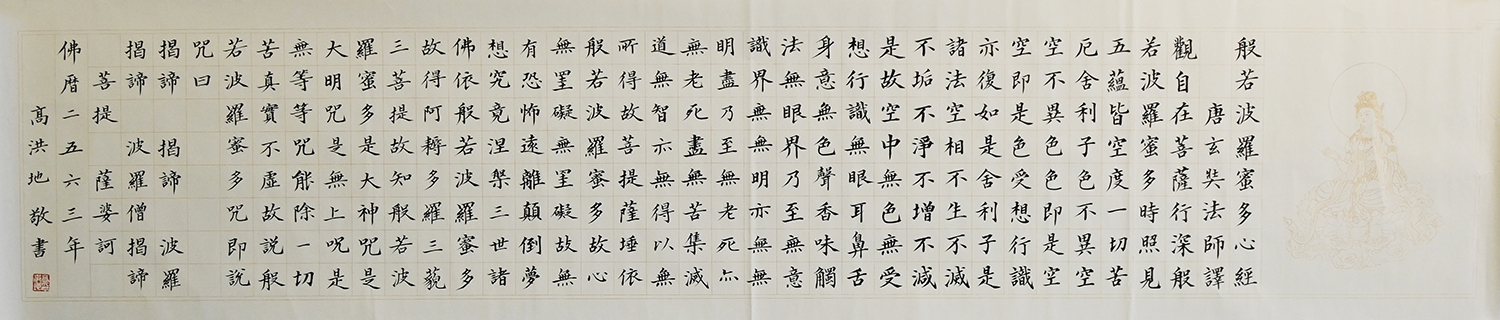 般若波羅蜜多心經
唐玄奘法師譯
觀自在菩薩行深般
若波羅蜜多時照見
五蘊皆空度一切苦
厄舍利子色不異空
空不異色色即是空
空即是色受想行識
亦復如是舍利子是
諸法空相不生不滅
不垢不淨不增不減
是故空中無色無受
想行識無眼耳鼻舌
身意無色聲香味觸
法無眼界乃至無意
識界無無明亦無無
明盡乃至無老死亦
無老死盡無苦集滅
道無智亦無得以無
所得故菩提薩埵依
般若波羅蜜多故心
無罣礙無罣礙故無
有恐怖遠離顛倒夢
想究竟涅槃三世諸
佛依般若波羅蜜多
故得阿耨多羅三藐
三菩提故知般若波
羅蜜多是大神咒是
大明咒是無上呪是
無等等咒能除一切
苦真實不虛故説般
若波羅蜜多咒即説
咒曰
揭諦 揭諦 波羅
揭諦 波羅僧揭諦
菩提 薩婆訶
佛曆二五六三年
髙洪地敬書